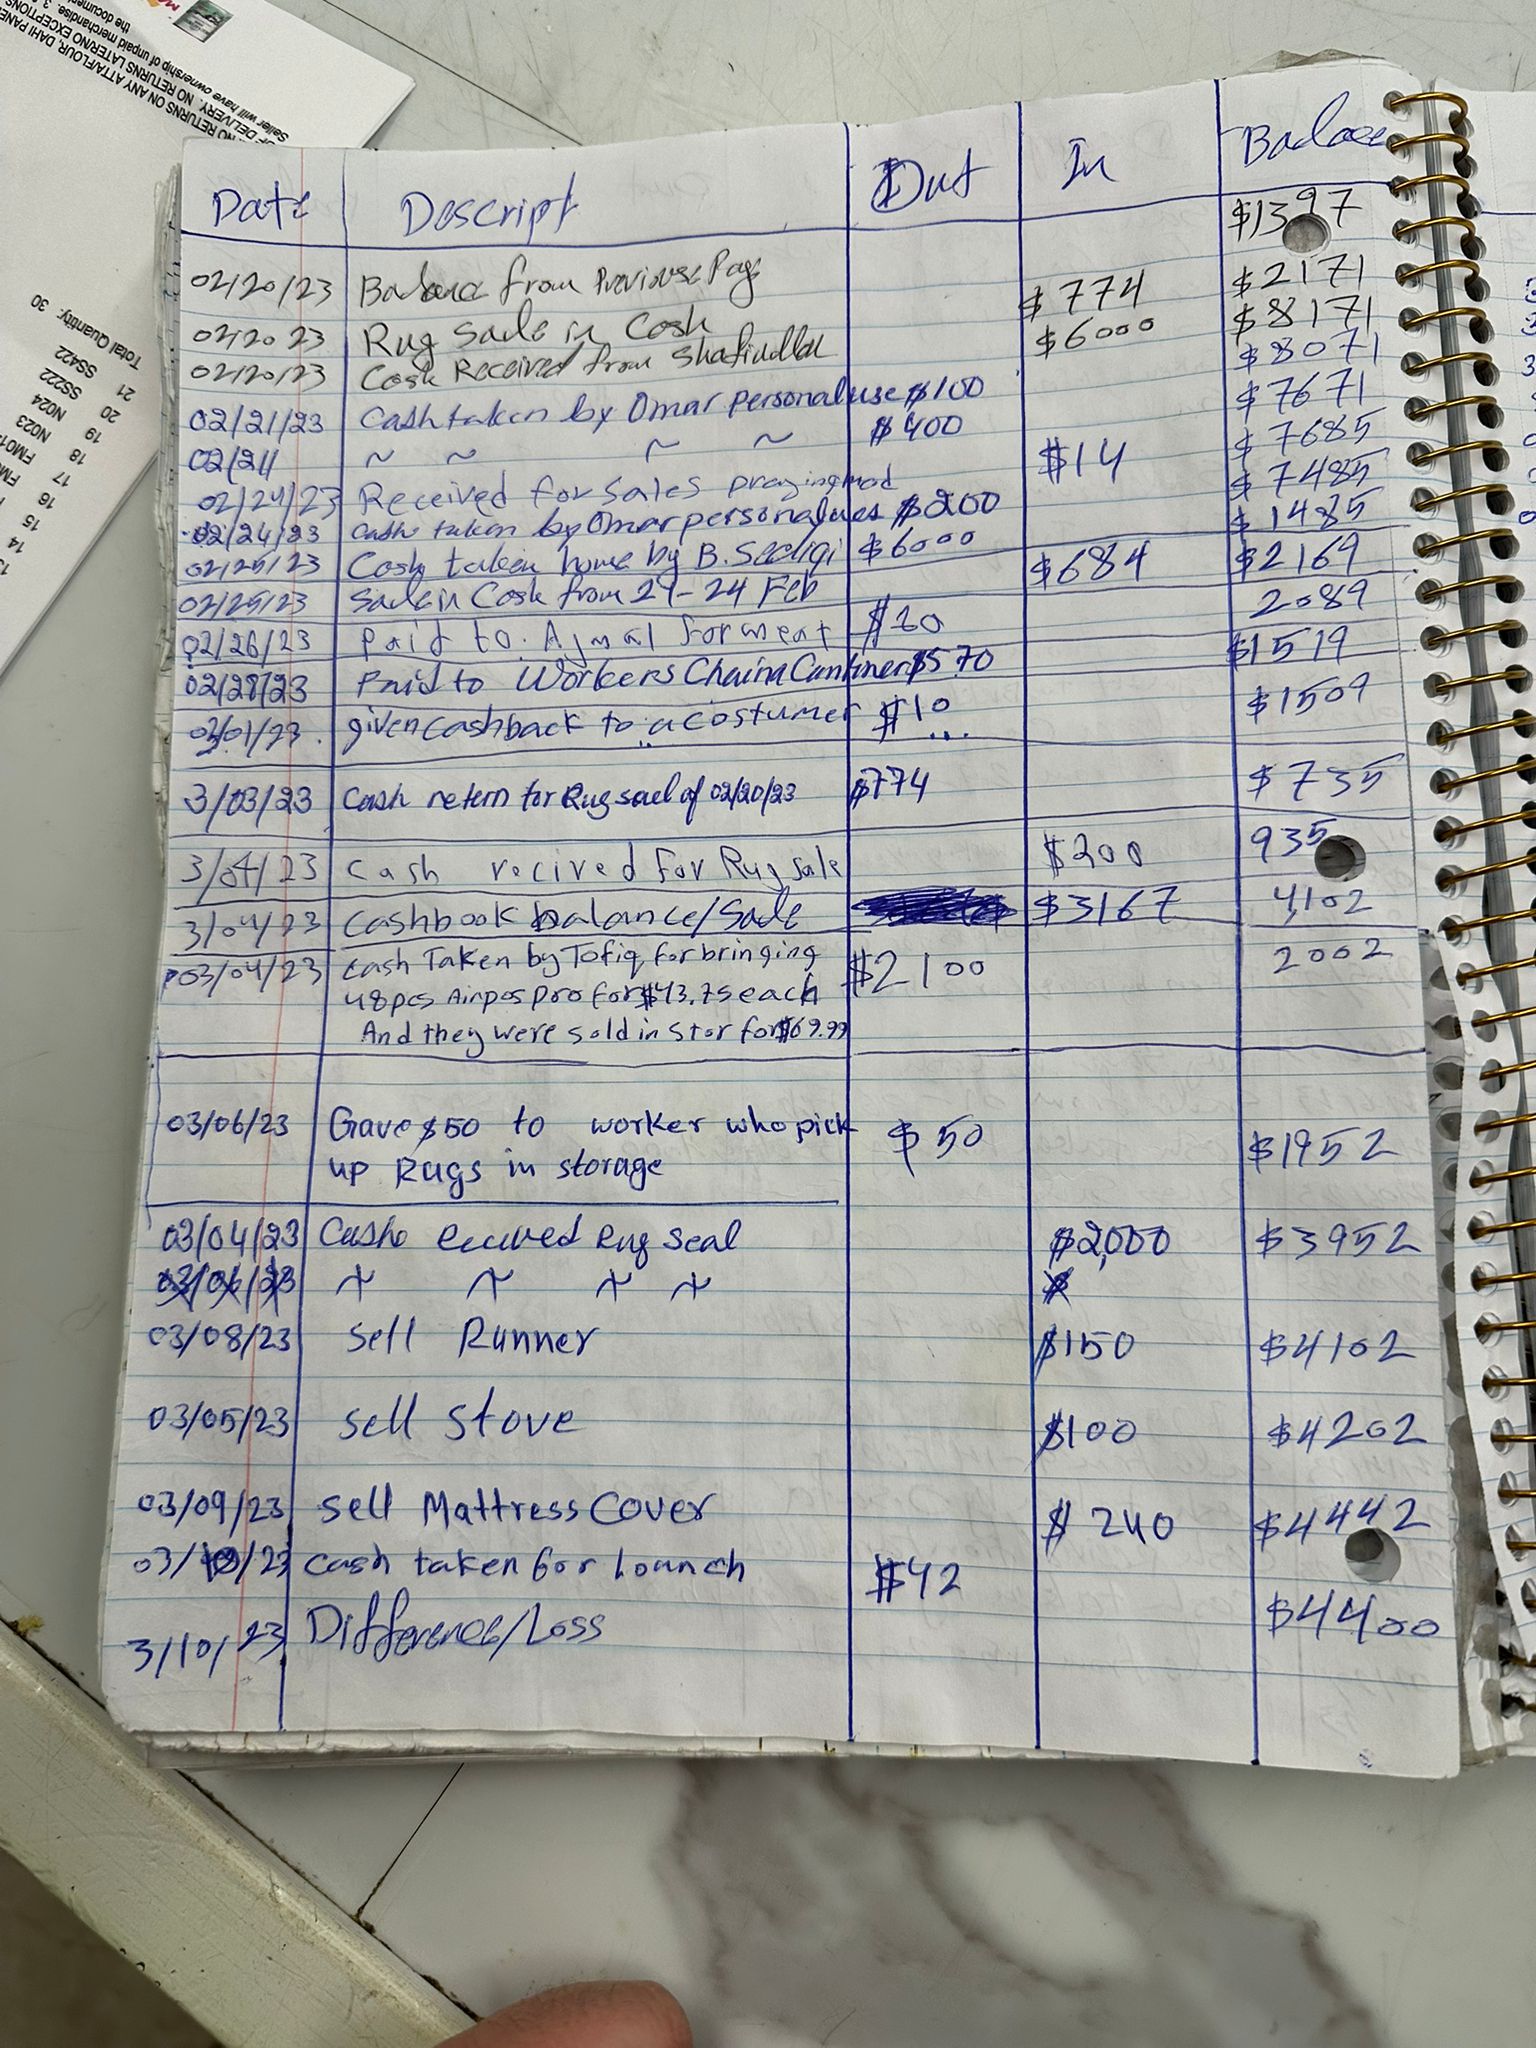 NO RETURNS ON ANY ATTA/FLOUR, DAHI PANE
OF DELIVERY. NO RETURNS LATER/NO EXCEPTIONS
Seller will have ownership of unpaid merchandise. 3.
the documen
Total Quantity: 30
21 SS422
20 SS222
19 N024
18 N023
17 FM01
16 FM
15
14
13
Date Descript Out In Balace
$1397
02/20/23 Balance from Previouse Page
02/20 23 Rug Sale in Cash $774 $2171
02/20/23 Cash Received from Shafiullah $6000 $8171
02/21/23 Cash taken by Omar personal use $100 $8071
02/21 ~ ~ ~ ~ $400 $7671
02/24/23 Received for sales prayingmad $14 $7685
02/24/23 cash taken by Omar personal ues $200 $7485
02/25/23 Cash taken home by B. Sediqi $6000 $1485
02/25/23 Sale in Cash from 21-24 Feb $684 $2169
02/26/23 Paid to Ajmal for meat $20 2089
02/28/23 Paid to Workers Chaina Cantiner $570 $1519
03/01/23 given cashback to a costumer $10 $1509
3/03/23 Cash retern for Rug sael of 02/20/23 $774 $735
3/04/23 Cash recived for Rug sale $200 935
3/04/23 Cashbook balance/Sale $3167 4,102
03/04/23 Cash Taken by Tofiq for bringing $2100 2002
48 pcs Airpos pro for $43.75 each
And they were sold in Stor for $69.99
03/06/23 Gave $50 to worker who pick $50 $1952
up Rugs in storage
03/04/23 Rug Seal $2,000 $3952
03/06/23 ~ ~ ~ ~ $
03/08/23 Sell Runner $150 $4102
03/05/23 Sell Stove $100 $4202
03/09/23 Sell Mattress Cover $240 $4442
03/10/23 Cash taken for lounch $42
3/10/23 Difference/Loss $4400